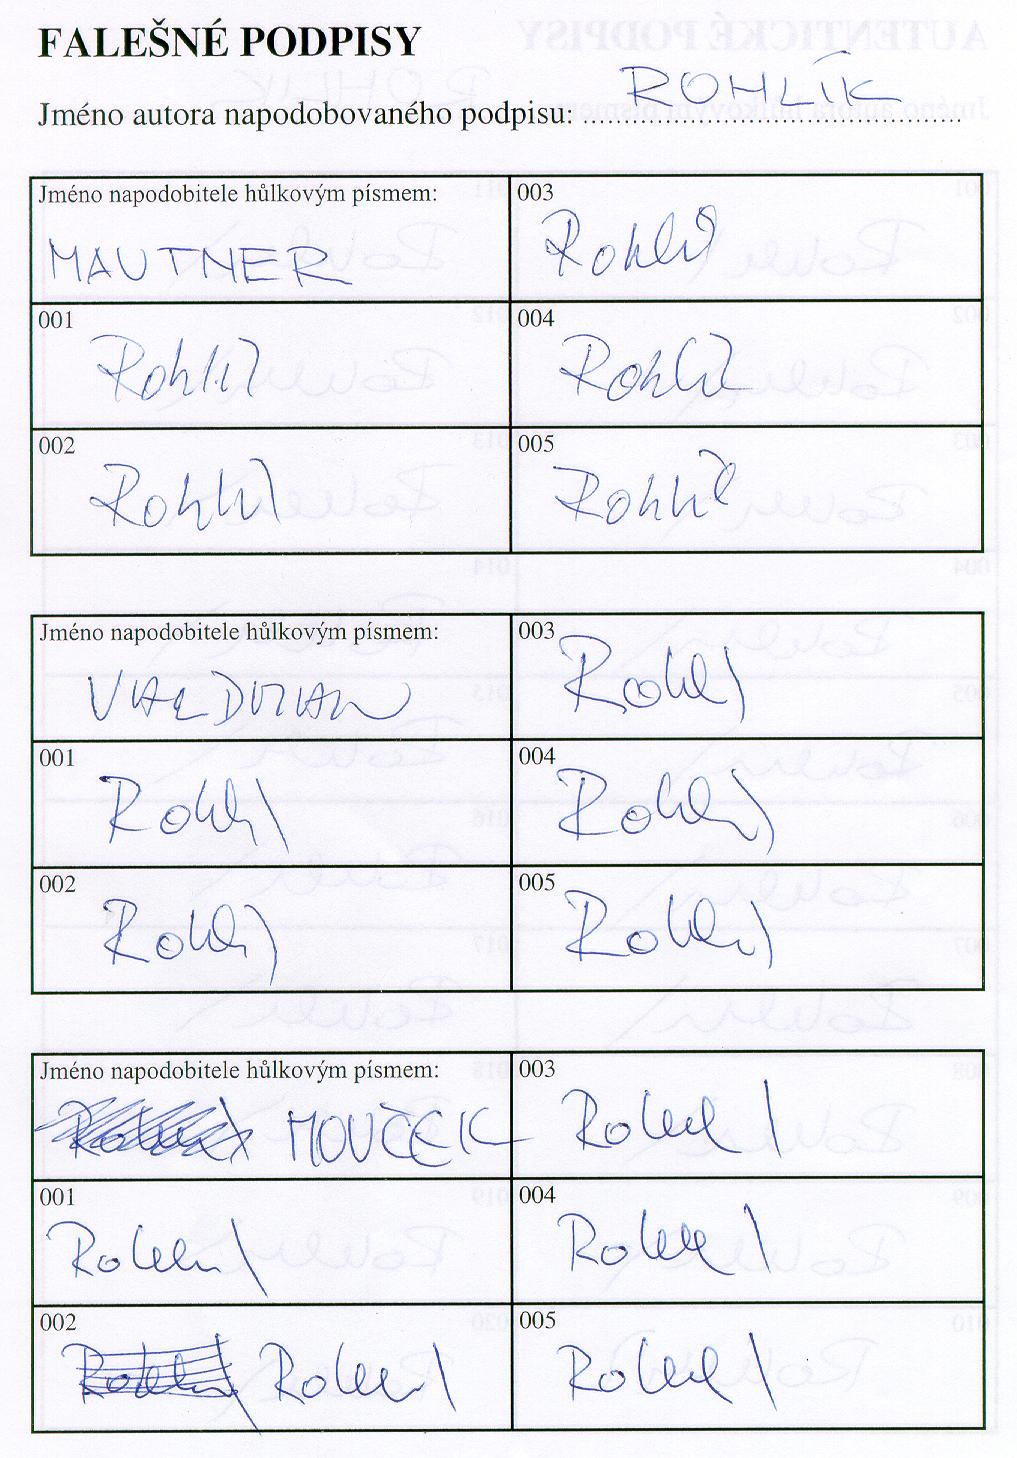 FALEŠNÉ PODPISY
Jméno autora napodobovaného podpisu: ROHLÍK
Jméno napodobitele hůlkovým písmem:
MAUTNER
003
Rohlík
001
Rohlík
004
Rohlík
002
Rohlík
005
Rohlík
Jméno napodobitele hůlkovým písmem:
003
Rohlík
001
Rohlík
004
Rohlík
002
Rohlík
005
Rohlík
Jméno napodobitele hůlkovým písmem:
MOUČEK
003
Rohlík
001
Rohlík
004
Rohlík
002
Rohlík
005
Rohlík